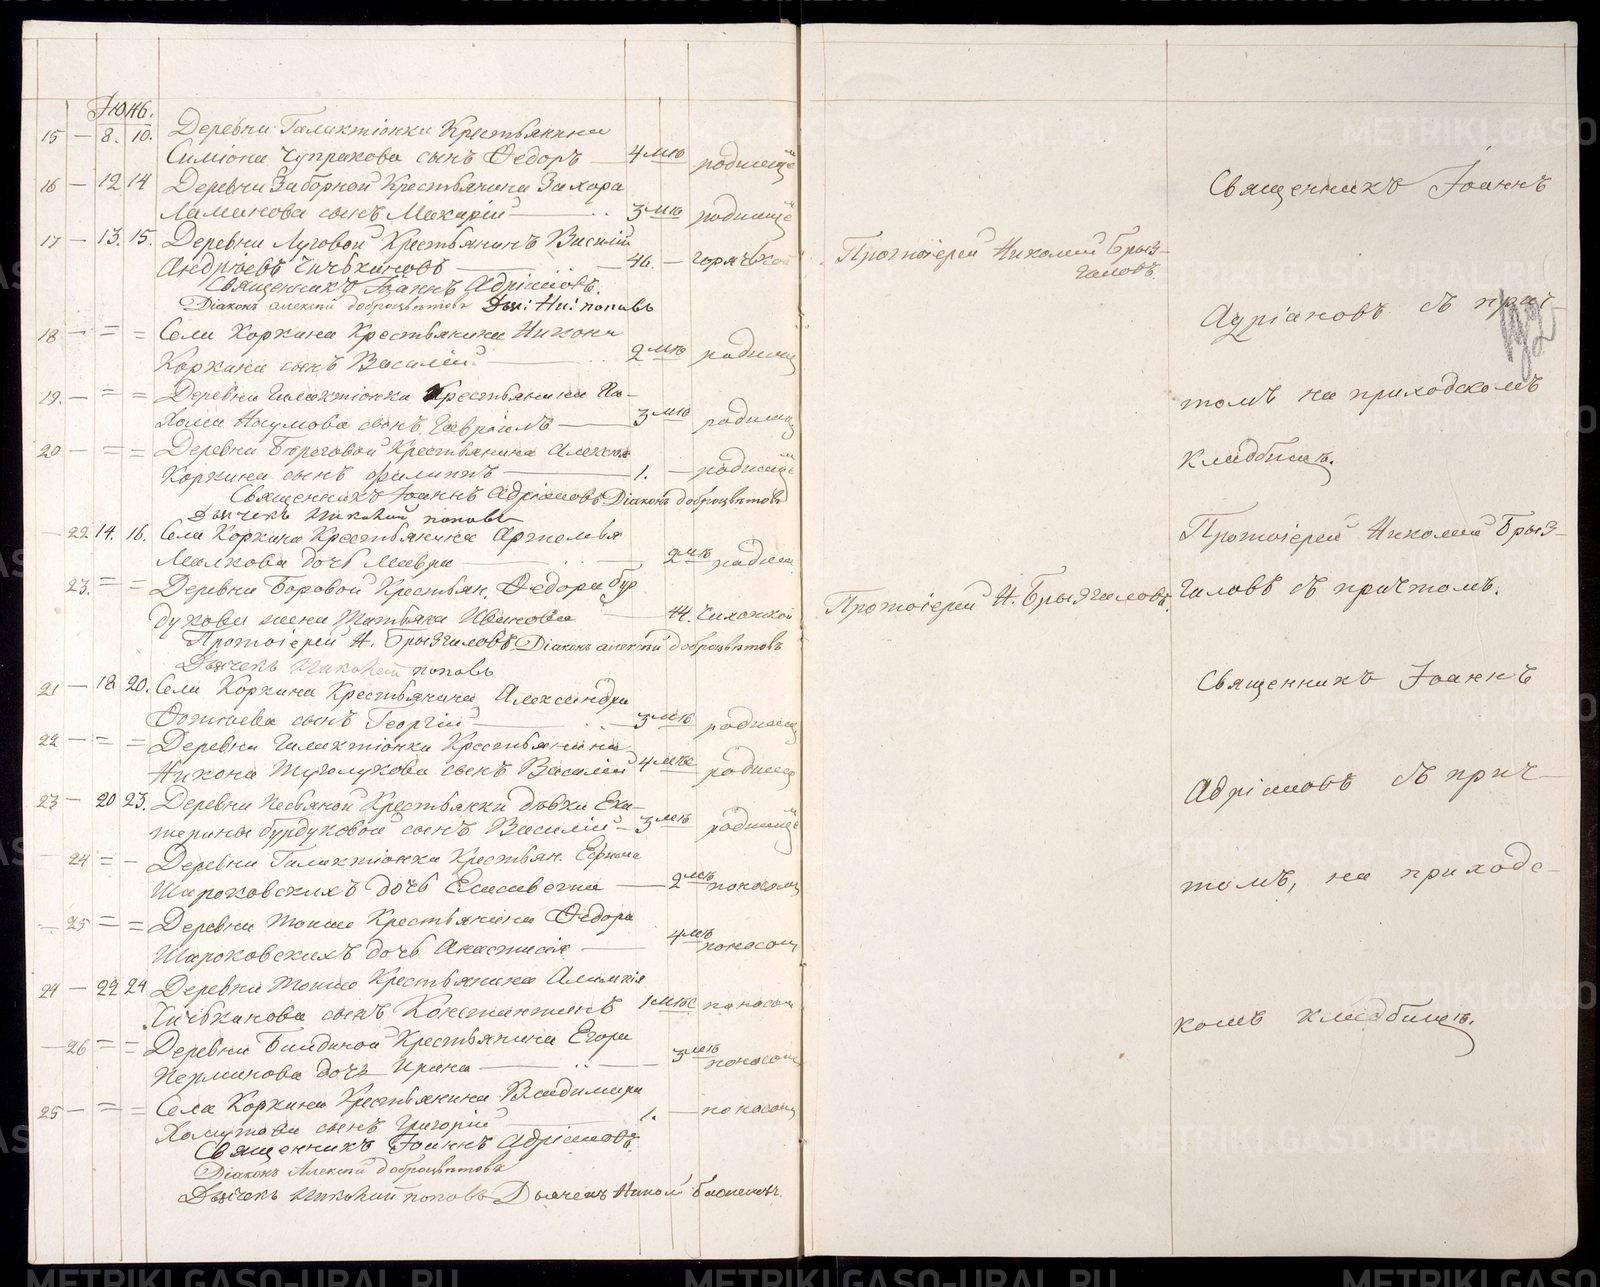 Іюнь.
15 — 8. 10. Деревни Галактіонки Крестьянина
Симіона Чупракова сынъ Ѳедоръ — 4 мѣс родимецъ
16 — 12 14 Деревни Заборной Крестьянина Захара
Ламанова сынъ Макарій — 3 мѣс родимецъ
17 — 13. 15. Деревни Луговой Крестьянинъ Василій
Андреевъ Чичькановъ — 46. — горячкой
Священникъ Іоаннъ Адріановъ.
Діаконъ Алексій Доброцвѣтовъ Дьч: Ни: Поповъ
18 — = = Села Коркина Крестьянина Никона
Коркина сынъ Василій — 2 мѣс родимец
19. — = = Деревни Галактіонки Крестьянина Па-
хома Наумова сынъ Гавріилъ — 3 мѣс родимец
20 — = = Деревни Береговой Крестьянина Алексея
Коркина сынъ Филиппъ — 1. — родимецъ
Священникъ Іоаннъ Адріановъ Діаконъ Доброцвѣтовъ
Дьячекъ Николай Поповъ
— 22 14. 16. Села Коркина Крестьянина Артемья
Малкова дочь Мавра — 2 мѣс родимец
23. = = Деревни Боровой Крестьян. Ѳедора Бур
дукова жена Татьяна Иванова — 44. Чихоткой
Протоіерей Н. Брызгаловъ Діаконъ Алексій Доброцвѣтовъ
Дьячекъ Николай Поповъ
21 — 18 20. Села Коркина Крестьянина Александра
сынъ Георгій — 3 мѣс родимец
22 — = = Деревни Галактіонки Крестьянина
Никона Туголукова сынъ Василій 4 мѣс родимец
23 — 20 23. Деревни Крестьянки дѣвки Ека-
терины Бурдуковой сынъ Василій — 3 мѣс родимецъ
— 24 = — Деревни Галактіонки Крестьян. Ефима
Шароковскихъ дочь Елисавета — 2 мѣс поносом
— 25 = = Деревни Тоние Крестьянина Ѳедора
Шароковскихъ дочь Анастасія — 4 мѣс поносом
24 — 22 24 Деревни Тоние Крестьянина
Чичьканова сынъ Константинъ 1 мѣс поносом
— 26 = = Деревни Крестьянина Егора
Перминова дочь Ирина — 3 мѣс поносом
25 — = = Села Коркина Крестьянина Владимира
Хамутова сынъ Григорій — 1. — поносом
Священникъ Іоаннъ Адріановъ.
Діаконъ Алексій Доброцвѣтовъ
Дьячекъ Николай Поповъ Дьячекъ
Протоіерей Николай Брыз-
галовъ
Протоіерей Н. Брызгаловъ.
Священникъ Іоаннъ
Адріановъ съ прич-
томъ на приходскомъ
кладбищѣ.
Протоіерей Николай Брыз-
галовъ съ причтомъ.
Священникъ Іоаннъ
Адріановъ съ прич-
томъ, на приходс-
комъ кладбищѣ.
METRIKI.GASO-URAL.RU